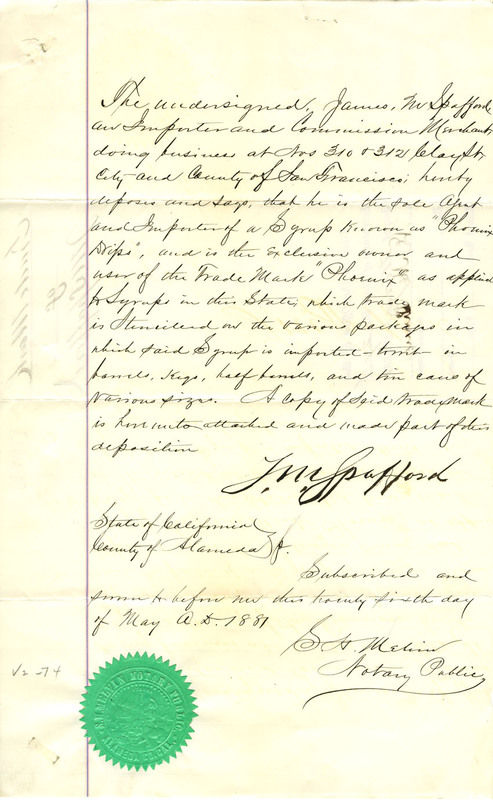 The undersigned, James, M Spafford
an Importer and Commission Merchant
doing business at Nos 310 & 312 Clay St
City and County of San Francisco; hereby
deposes and says, that he is the sole Agent
and Importer of a Syrup known as "Phoenix
Drips", and is the exclusive owner and
user of the Trade Mark "Phoenix" as applied
to Syrups in this State, which trade mark
is stenciled on the various packages in
which said Syrup is imported - in
barrels, Kegs, half barrels, and tin cans of
various sizes. A copy of said trade Mark
is hereunto attached and made part of this
deposition
J. M. Spafford
State of California
County of Alameda
Subscribed and
sworn to before me this twenty sixth day
of May A.D. 1881
S H Melvin
Notary Public
V2 274
S. H. MELVIN NOTARY PUBLIC